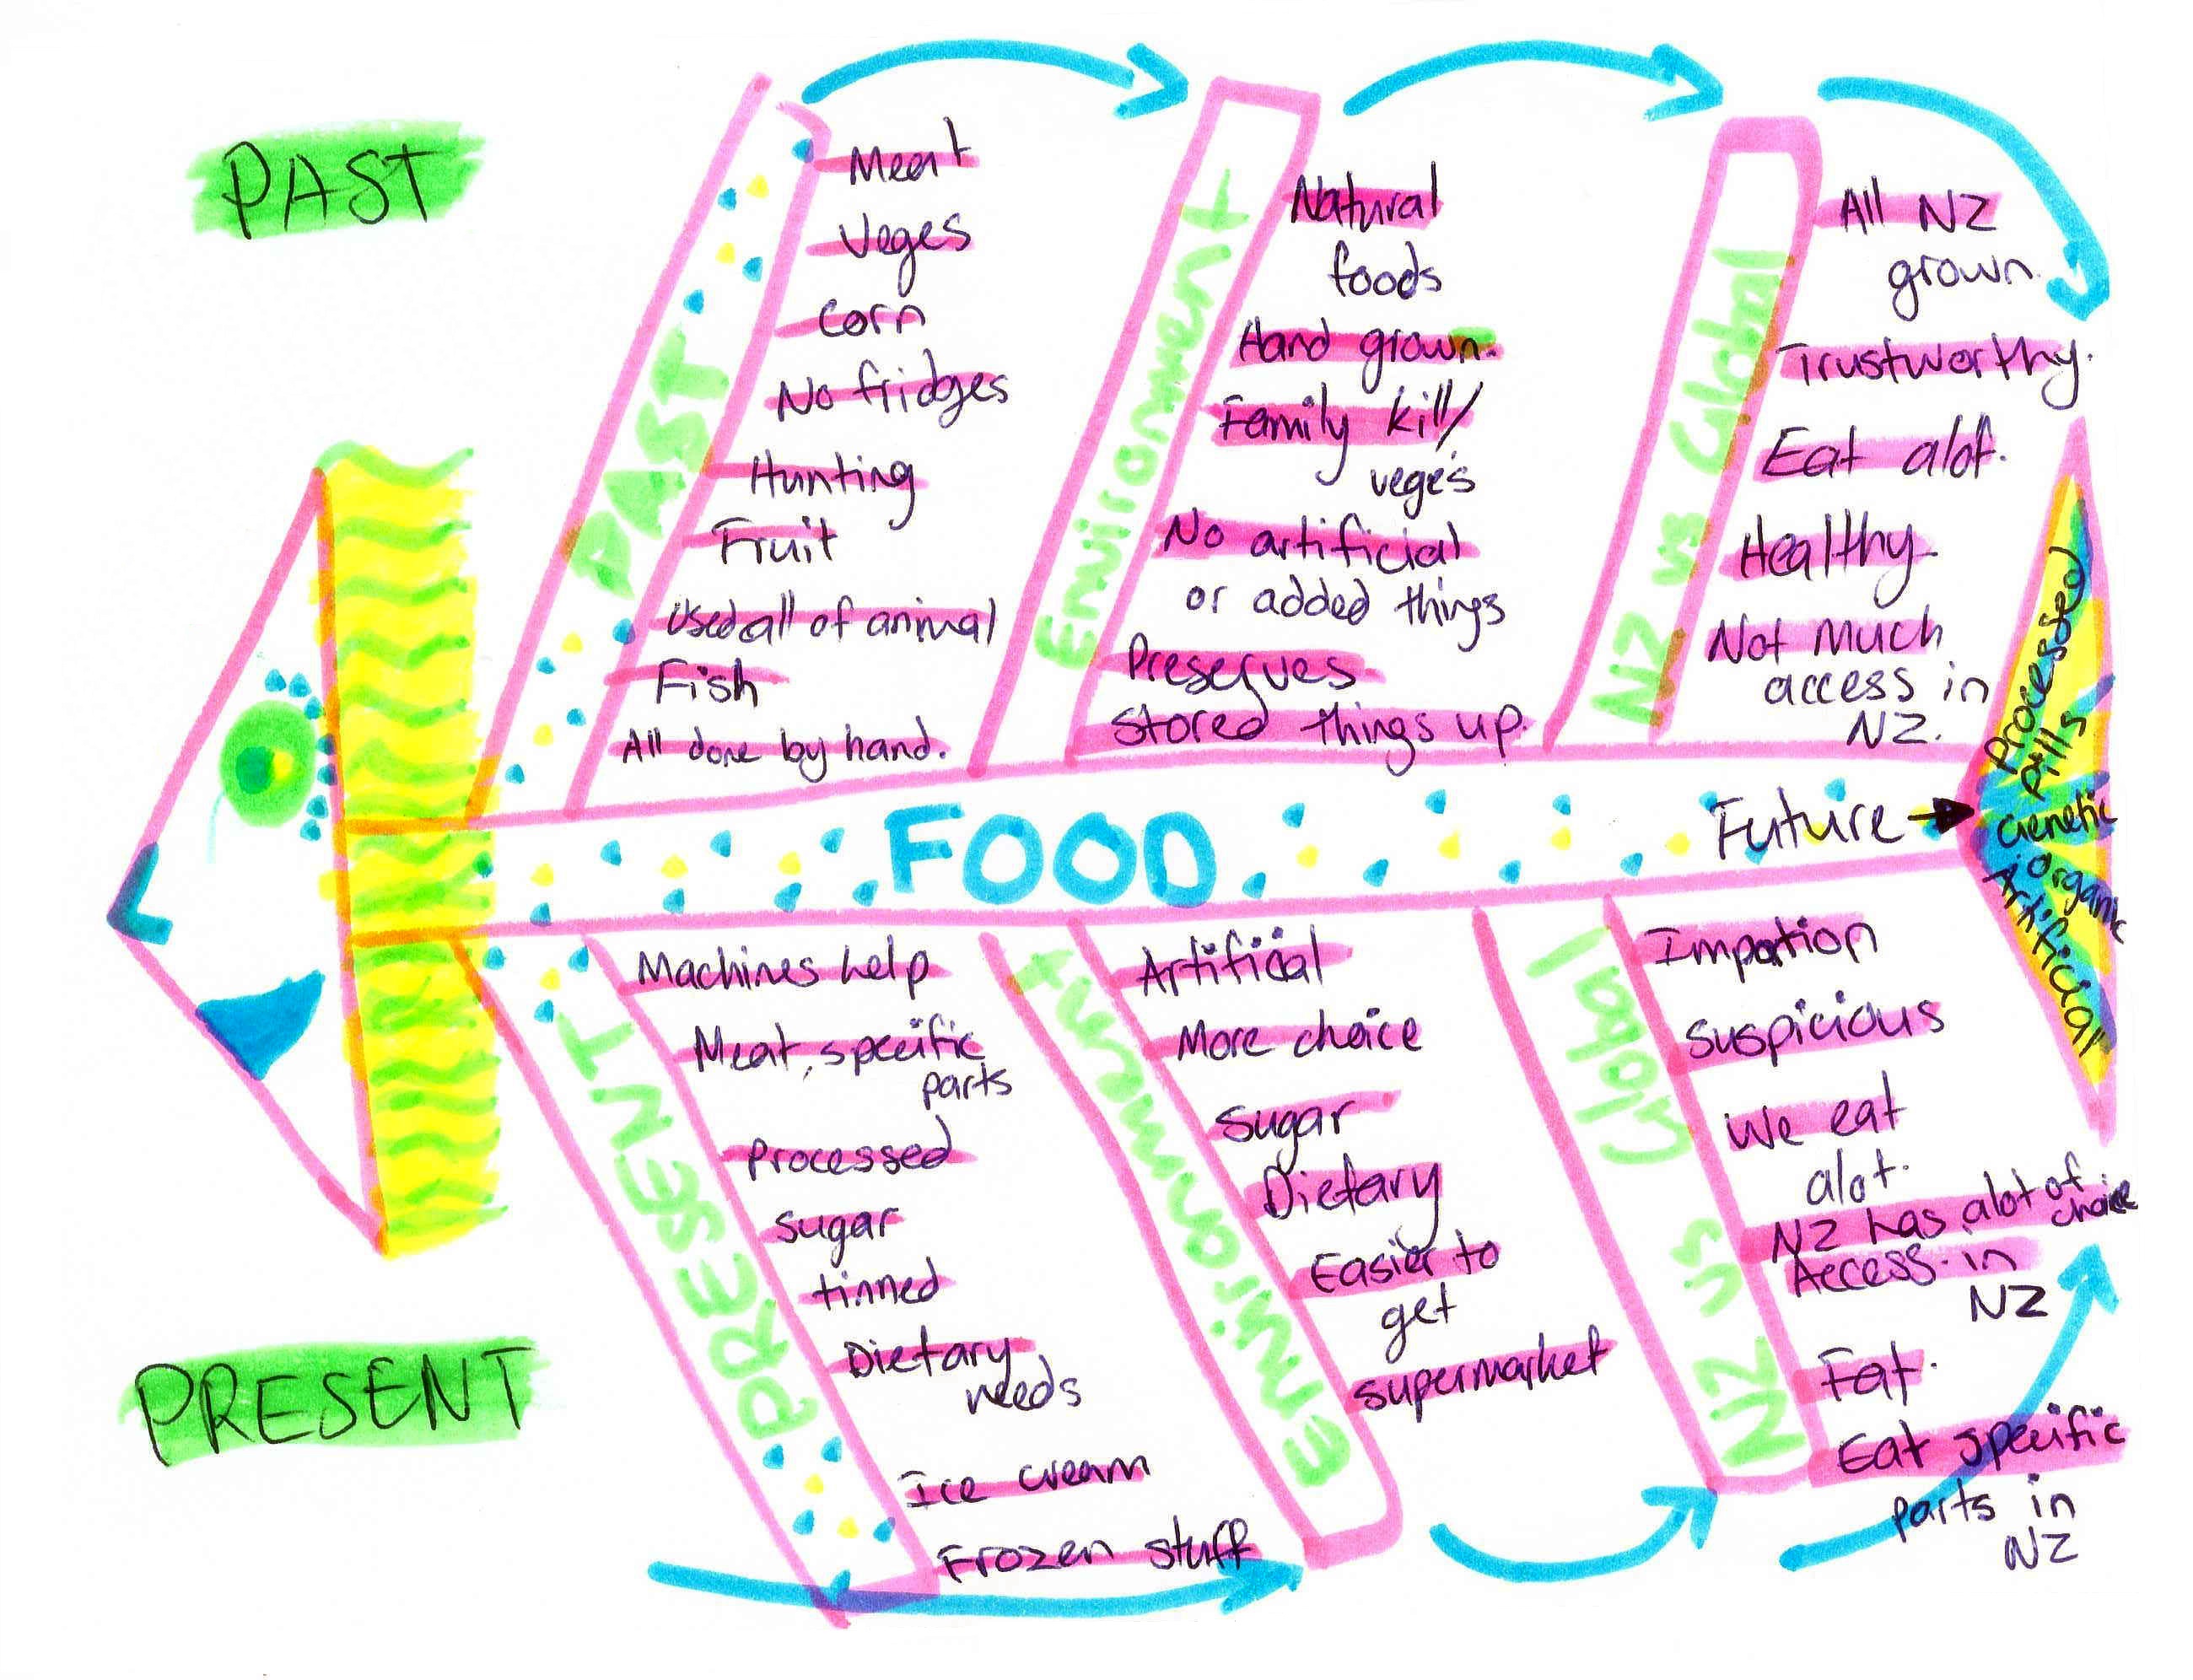 PAST
PAST
Meat
Veges
Corn
No fridges
Hunting
Fruit
Used all of animal
Fish
All done by hand.
Environment
Natural
foods
Hand grown.
Family kill/
veges
No artificial
or added things
Preserves
Stored things up.
NZ vs Global
All NZ
grown.
Trustworthy.
Eat alot.
Healthy
Not much
access in
NZ.
FOOD
Future →
Processed
Pills
Genetic
organic
Artificial
PRESENT
PRESENT
Machines help
Meat, specific
parts
Processed
sugar
tinned
Dietary
needs
Ice cream
Frozen stuff
Environment
Artificial
More choice
Sugar
Dietary
Easier to
get
supermarket
NZ vs Global
Importion
Suspicious
We eat
alot.
NZ has alot of
choice
Access in
NZ
Fat.
Eat specific
parts in
NZ